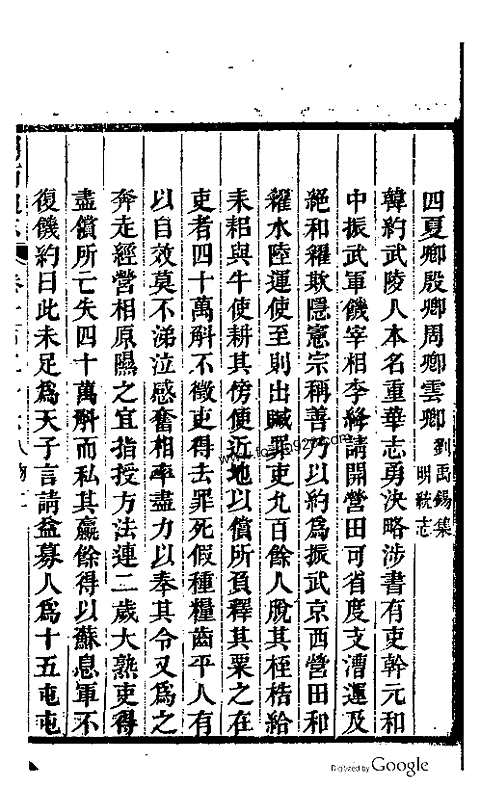 四夏卿殷卿周卿雲卿劉禹錫集
明統志
韓約武陵人本名重華志勇決略涉書有吏幹元和
中振武軍饑宰相李絳請開營田可省度支漕運及
絕和糴欺隱憲宗稱善乃以約為振武京西營田和
糴水陸運使至則出贓罪吏九百餘人脫其桎梏給
耒耜與牛使耕其傍便近地以償所負釋其粟之在
吏者四十萬斛不徵吏得去罪死假種糧齒平人有
以自效莫不涕泣感奮相率盡力以奉其令又為之
奔走經營相原隰之宜指授方法連二歲大熟吏得
盡償所亡失四十萬斛而私其贏餘得以蘇息軍不
復饑約曰此未足為天子言請益募人為十五屯屯
Digitized by Google